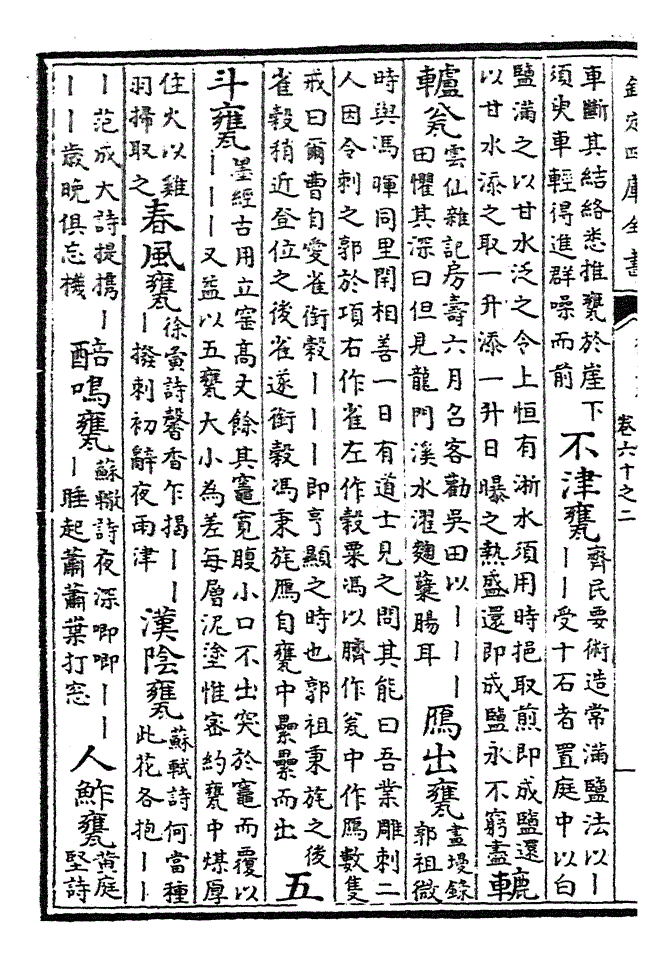 欽定四庫全書
卷六十之二
車斷其結絡悉推甕於崖下
須臾車輕得進群噪而前
不津甕
齊民要術造常滿鹽法以一
——受十石者置庭中以白
鹽滿之以甘水泛之令上恒有淅水須用時挹取煎即成鹽還
以甘水添之取一升添一升日曝之熱盛還即成鹽永不窮盡
轆
轤瓮
雲仙雜記房壽六月召客勸吳田以———
田懼其深曰但見龍門溪水濯麴蘖腸耳
鴈出甕
畫墁錄
郭祖微
時與馮暉同里閈相善一日有道士見之問其能曰吾業雕刺二
人因令刺之郭於項右作雀左作榖粟馮以臍作瓮中作鴈數隻
戒曰爾曹自愛雀銜榖———即亨顯之時也郭祖秉旄之後
雀榖稍近登位之後雀遂銜榖馮秉旄鴈自甕中纍纍而出
五
斗甕
墨經古用立窑高丈餘其竈寛腹小口不出突於竈而覆以
———又益以五甕大小為差每層泥塗惟密約甕中煤厚
住火以雞
羽掃取之
春風甕
徐夤詩馨香乍揭——
—撥刺初辭夜雨津
漢陰甕
蘇軾詩何當種
此花各抱——
—范成大詩提攜—
——歲晚俱忘機
醅鳴甕
蘇轍詩夜深唧唧——
—睡起蕭蕭葉打窓
人鮓甕
黄庭
堅詩